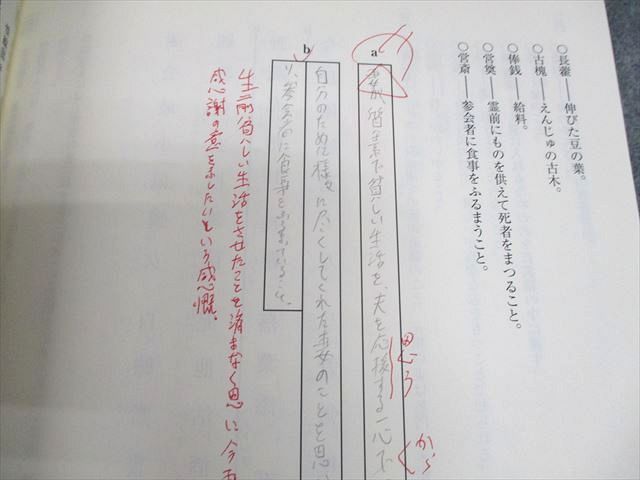 ○長藿──伸びた豆の葉。
○古槐──えんじゅの古木。
○俸銭──給料。
○営奠──霊前にものを供えて死者をまつること。
○営斎──参会者に食事をふるまうこと。
a
で貧しい生活を、夫を応援する一心で
思う
から
b
自分のために様々に尽くしてくれた妻のことを思い
り、参会者に食事をふるまっていること。
生前貧しい生活をさせたことを済まなく思い今
感謝の意を示したいという感慨。